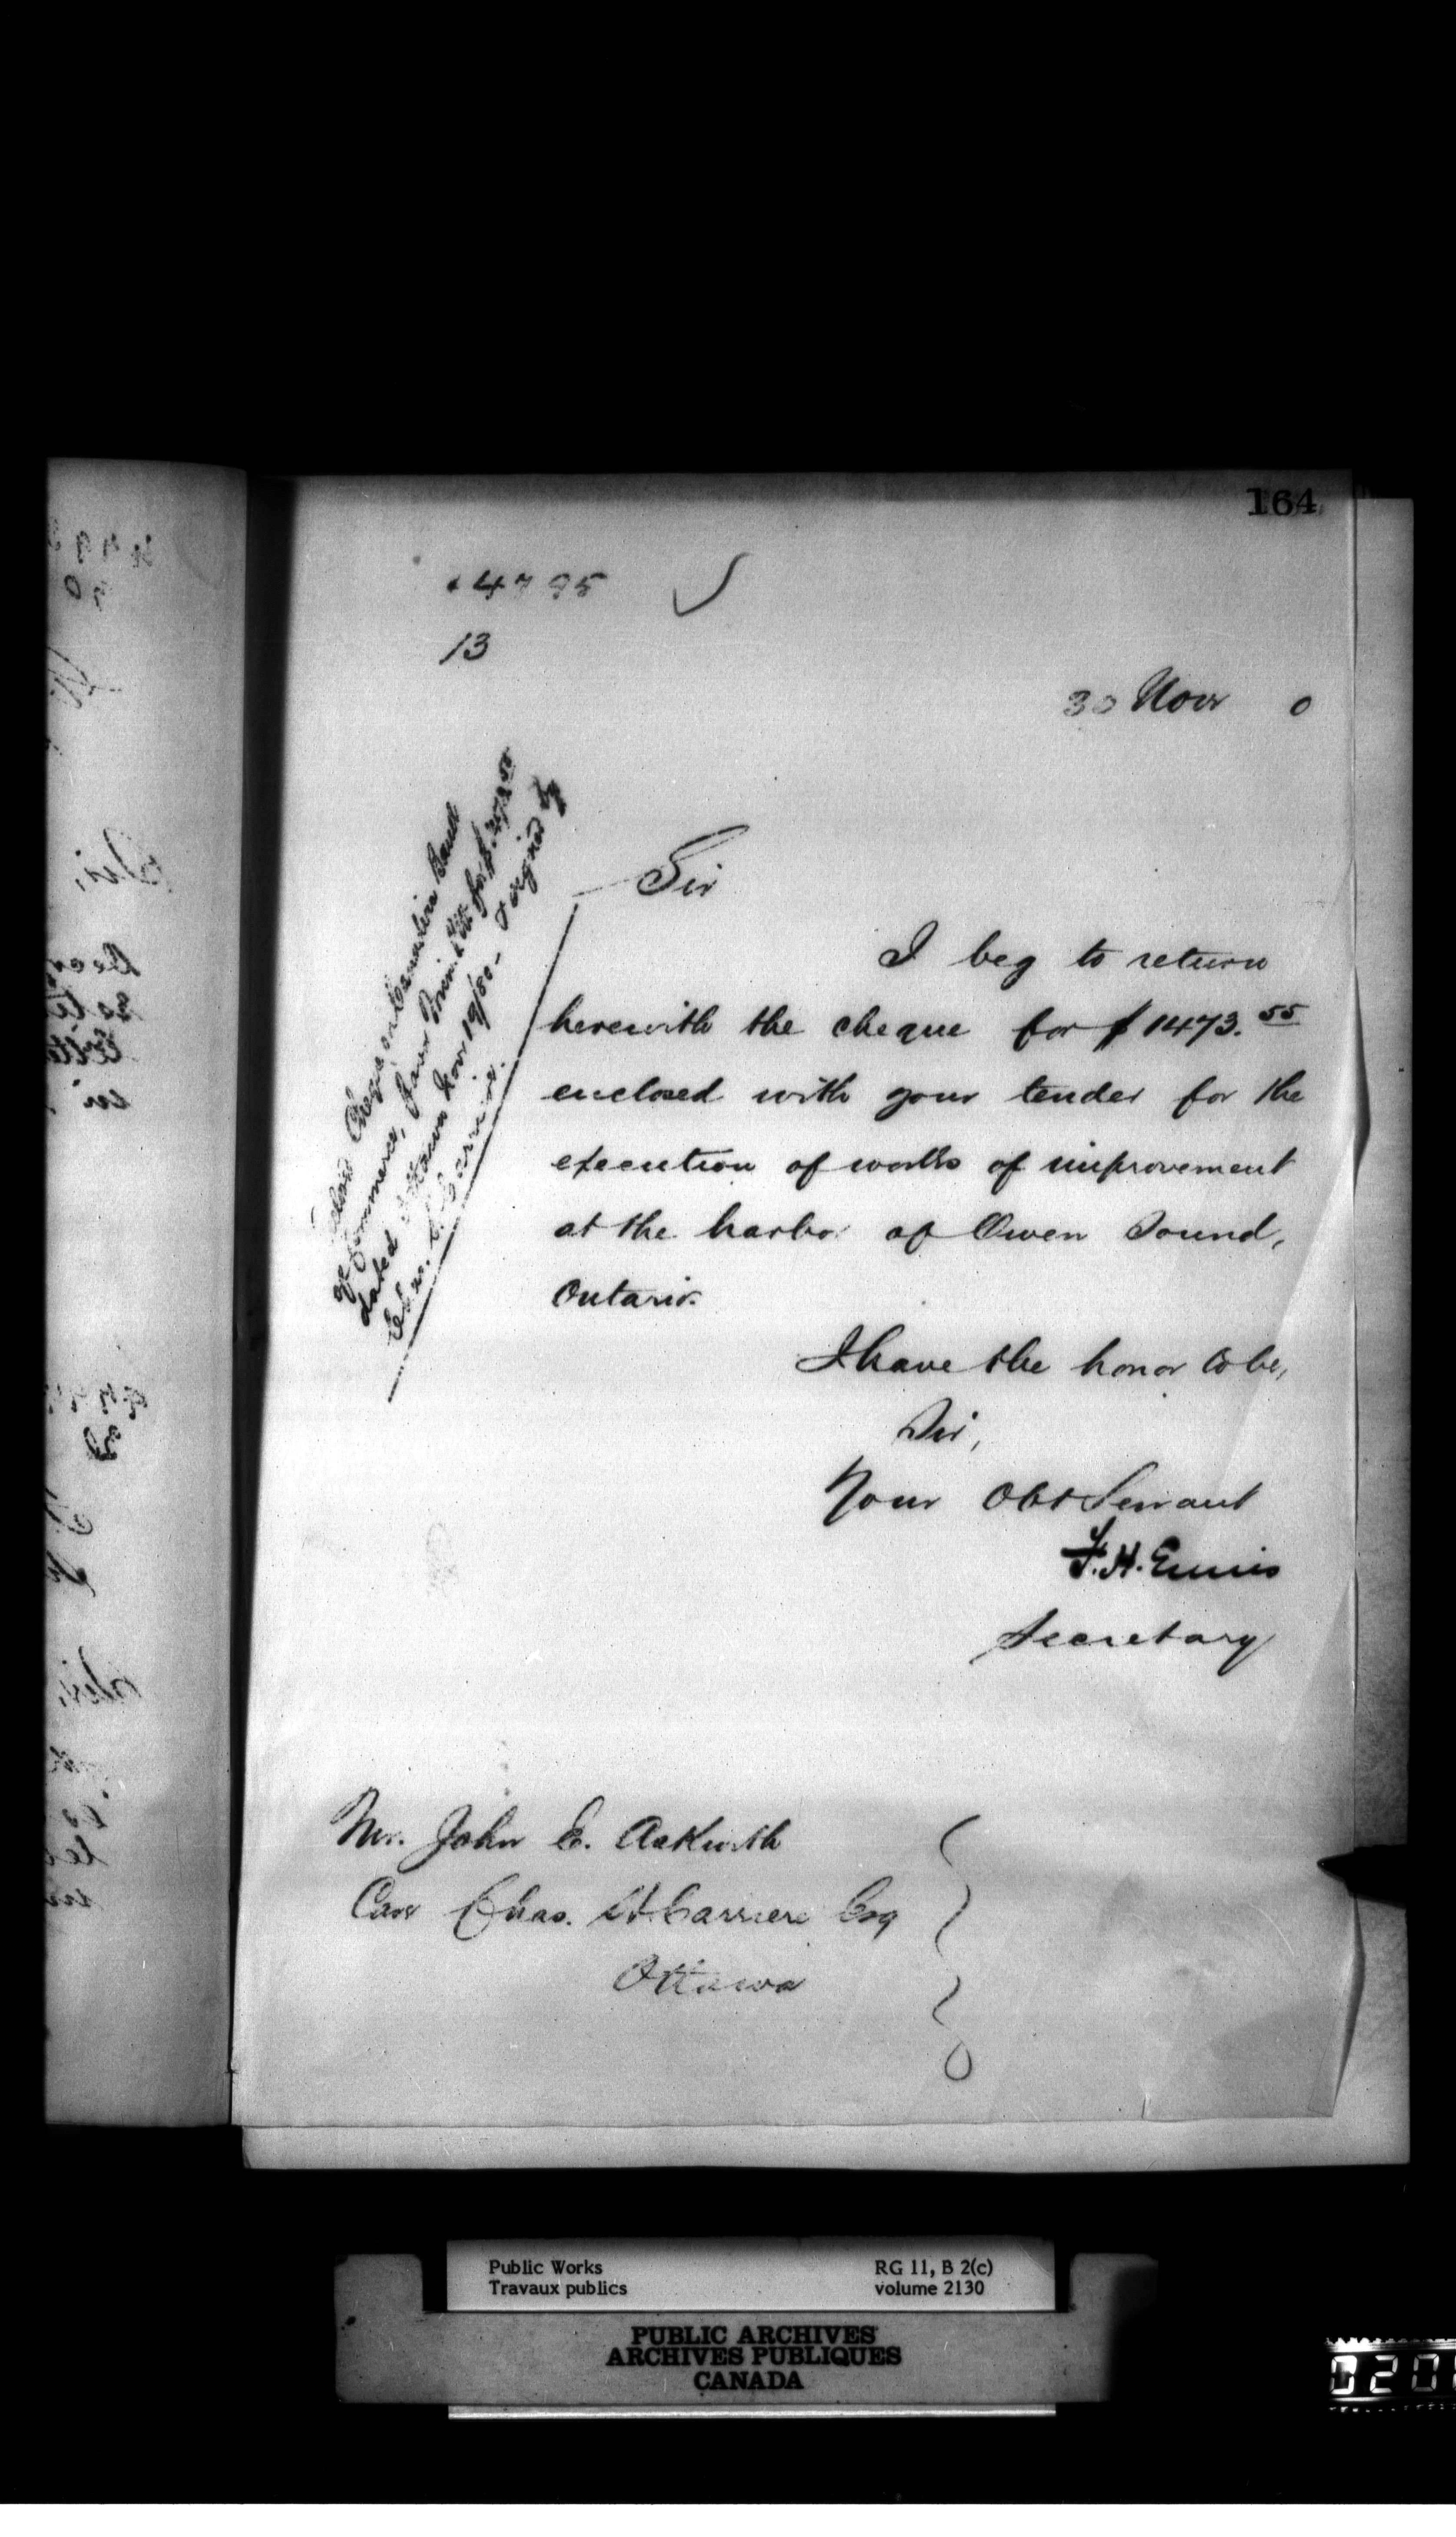 164
14795
13
30 Novr 0
Cheque on Canadian Bank
of Commerce, favor for $1473.55
dated Ottawa Novr 19/80 - & signed by
Chas. Carriere.
Sir
I beg to return
herewith the cheque for $1473.55
enclosed with your tender for the
execution of works of improvement
at the harbor of Owen Sound,
Ontario.
I have the honor to be,
Sir,
Your Obt Servant
F.H. Ennis
Secretary
Mr. John E. Askwith
Care Chas. Carriere Esq
Ottawa
Public Works
Travaux publics
RG 11, B 2(c)
volume 2130
PUBLIC ARCHIVES
ARCHIVES PUBLIQUES
CANADA
020